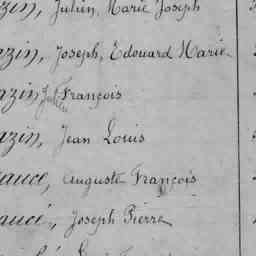 azin, Julien, Marie Joseph
azin, Joseph, Edouard Marie
azin Julien François
azin, Jean Louis
auce, Auguste François
aucé, Joseph Pierre